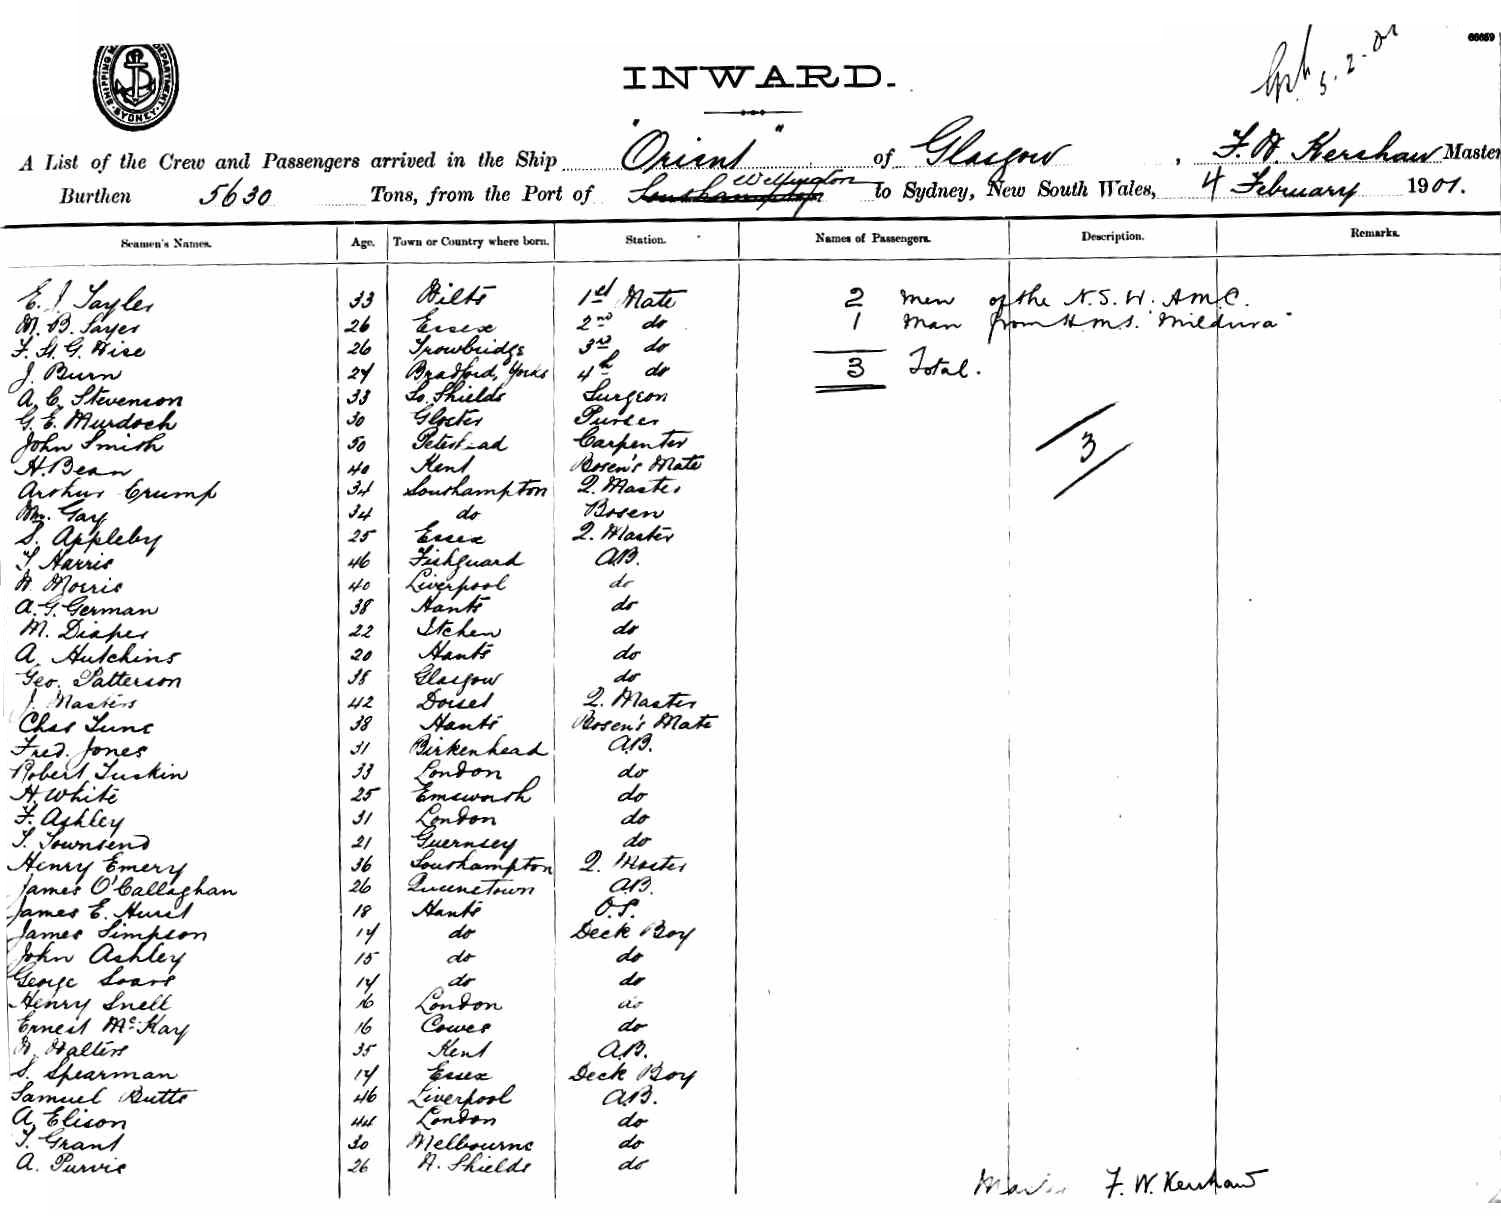 66659
SHIPPING M DEPARTMENT
SYDNEY
5.2.01
INWARD.
A List of the Crew and Passengers arrived in the Ship "Orient" of Glasgow, F. W. Kershaw Master
Burthen 5630 Tons, from the Port of Southampton Wellington to Sydney, New South Wales, 4 February 1901.
Seamen's Names. Age. Town or Country where born. Station. Names of Passengers. Description. Remarks.
E. J. Tayler 33 Wilts 1st Mate 2 men of the N.S.W. A.M.C.
M. B. Sayer 26 Essex 2nd do 1 man from H.M.S. "Mildura"
F. St. G. Wise 26 Trowbridge 3rd do
J. Burn 24 Bradford, Yorks 4th do 3 Total.
A. C. Stevenson 33 So. Shields Surgeon
G. E. Murdoch 30 Gloster Purser
John Smith 50 Peterhead Carpenter 3
H. Bean 40 Kent Bosen's Mate
Arthur Crump 34 Southampton Q. Master
Wm. Gay 34 do Bosen
S. Appleby 25 Essex Q. Master
T. Harris 46 Fishguard A.B.
W. Morris 40 Liverpool do
A. G. German 38 Hants do
M. Diaper 22 Itchen do
A. Hutchins 20 Hants do
Geo. Patterson 38 Glasgow do
J. Masters 42 Dorset Q. Master
Chas Tune 38 Hants Bosen's Mate
Fred. Jones 31 Birkenhead A.B.
Robert Tuskin 33 London do
H. White 25 Emsworth do
F. Ashley 31 London do
T. Townsend 21 Guernsey do
Henry Emery 36 Southampton Q. Master
James O'Callaghan 26 Queenstown A.B.
James E. Hurst 18 Hants O.S.
James Simpson 14 do Deck Boy
John Ashley 15 do do
George Soars 14 do do
Henry Snell 16 London do
Ernest McKay 16 Cowes do
W. Walters 35 Kent A.B.
S. Spearman 14 Essex Deck Boy
Samuel Butts 46 Liverpool A.B.
A. Elison 44 London do
T. Grant 30 Melbourne do
A. Purvis 26 N. Shields do
Master F. W. Kershaw